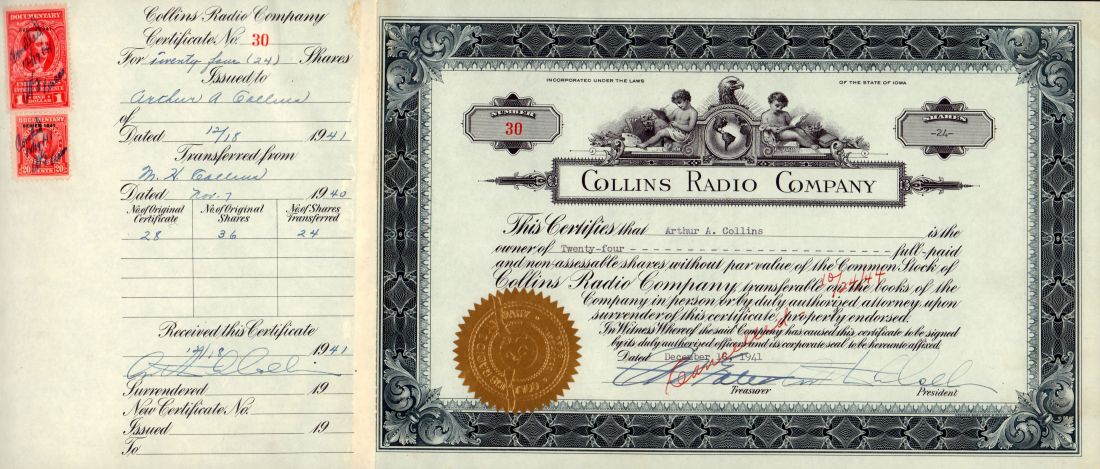 DOCUMENTARY
SERIES 1941
ONE DOLLAR
1 1
DOCUMENTARY
SERIES 1941
20 CENTS 20
Collins Radio Company
Certificate No. 30
For twenty four (24) Shares
Issued to
Arthur A Collins
of
Dated 12/18 1941
Transferred from
M. H Collins
Dated Nov. 7 1940
No. of Original Certificate No. of Original Shares No. of Shares Transferred
28 36 24
Received this Certificate
12/18 1941
Surrendered 19
New Certificate No.
Issued 19
To
INCORPORATED UNDER THE LAWS OF THE STATE OF IOWA
NUMBER
30
SHARES
-24-
COLLINS RADIO COMPANY
This Certifies that Arthur A. Collins is the
owner of Twenty-four - - - - - - - - - - - - - - - - - - - - - full-paid
and non-assessable shares without par value of the Common Stock of
Collins Radio Company transferable on the books of the
Company in person or by duly authorized attorney upon
surrender of this certificate properly endorsed.
In Witness Whereof the said Company has caused this certificate to be signed
by its duly authorized officers and its corporate seal to be hereunto affixed.
Dated December 18, 1941
Cancelled - 10/24/44
Treasurer President